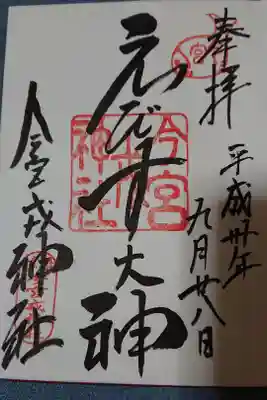 奉拝
平成卅年
九月廿八日
えびす大神
今宮
戎
神社
今宮戎神社